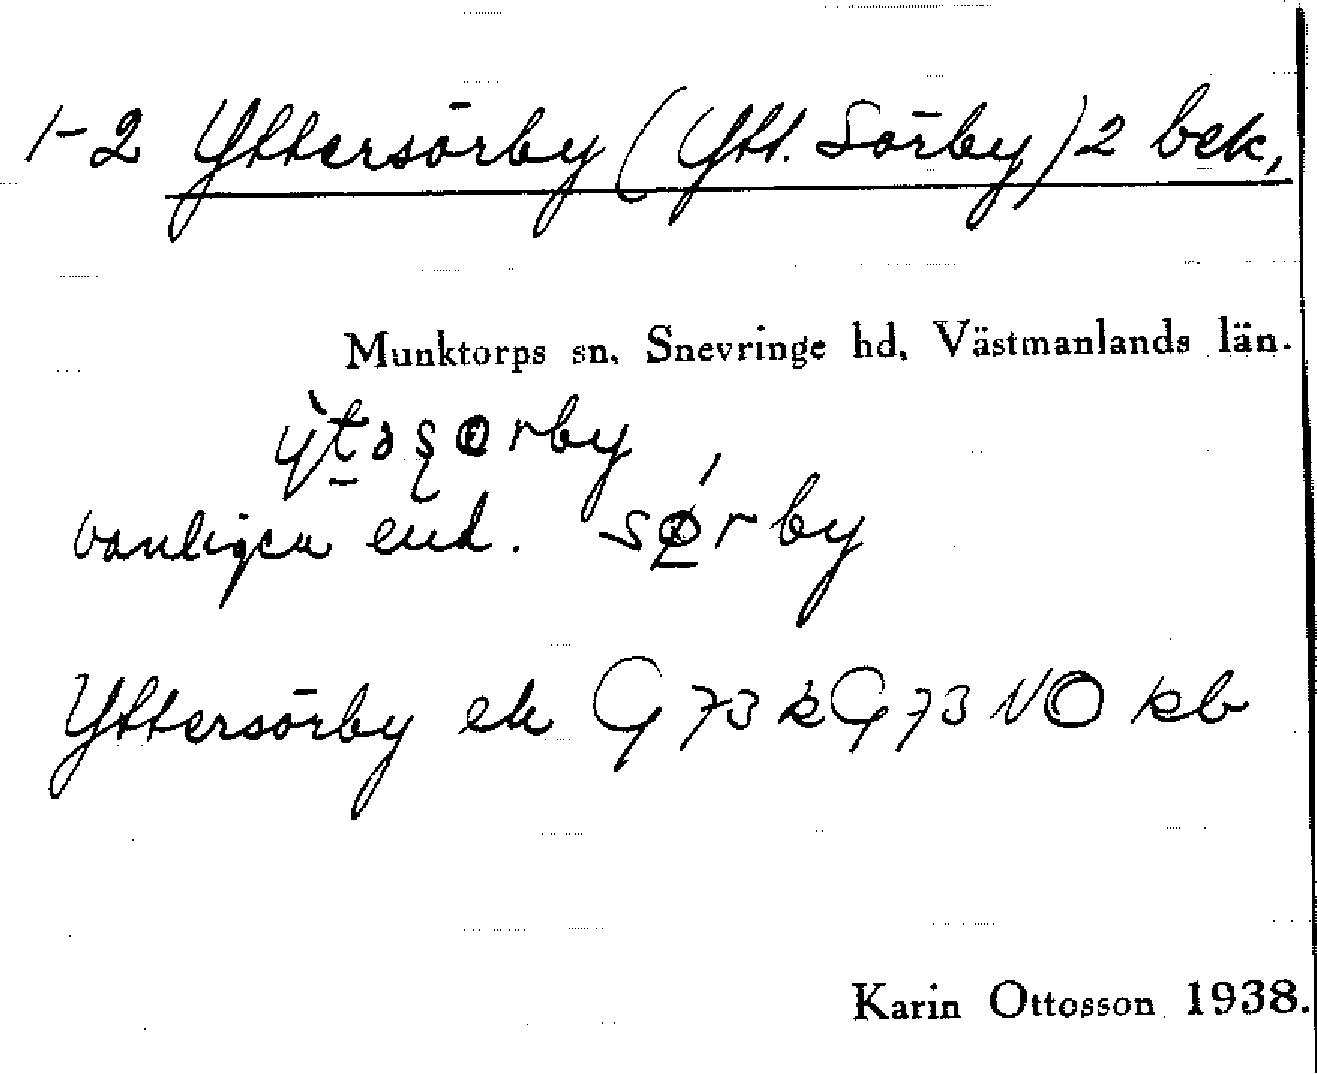 1-2 Yttersörby (Ytt. Sörby) 2 bek,
Munktorps sn. Snevringe hd, Västmanlands län.
ỳt̠əʂɵrby
vanligen end. sǿ̠rby
Yttersörby ek G 73 k G 73 NO kb
Karin Ottosson 1938.